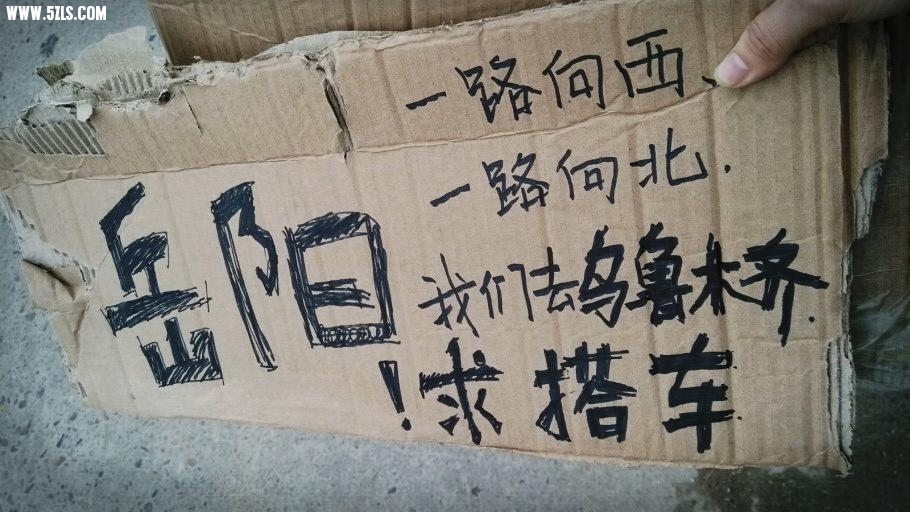 WWW.5ZLS.COM
一路向西、
一路向北.
岳阳
我们去乌鲁木齐.
!求搭车